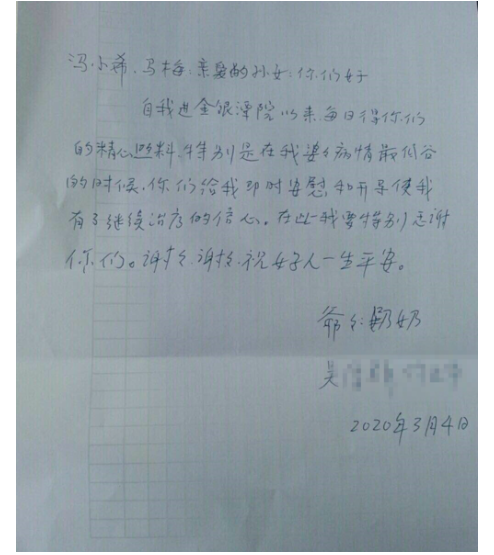 冯小希、马梅、亲爱的孙女：你们好
自我进金银潭院以来，每日得你们
的精心照料，特别是在我妻子病情最低谷
的时候，你们给我即时安慰和开导使我
有了继续治疗的信心。在此我要特别感谢
你们。谢谢，谢谢，祝好人一生平安。
爷爷：奶奶
吴
2020年3月4日